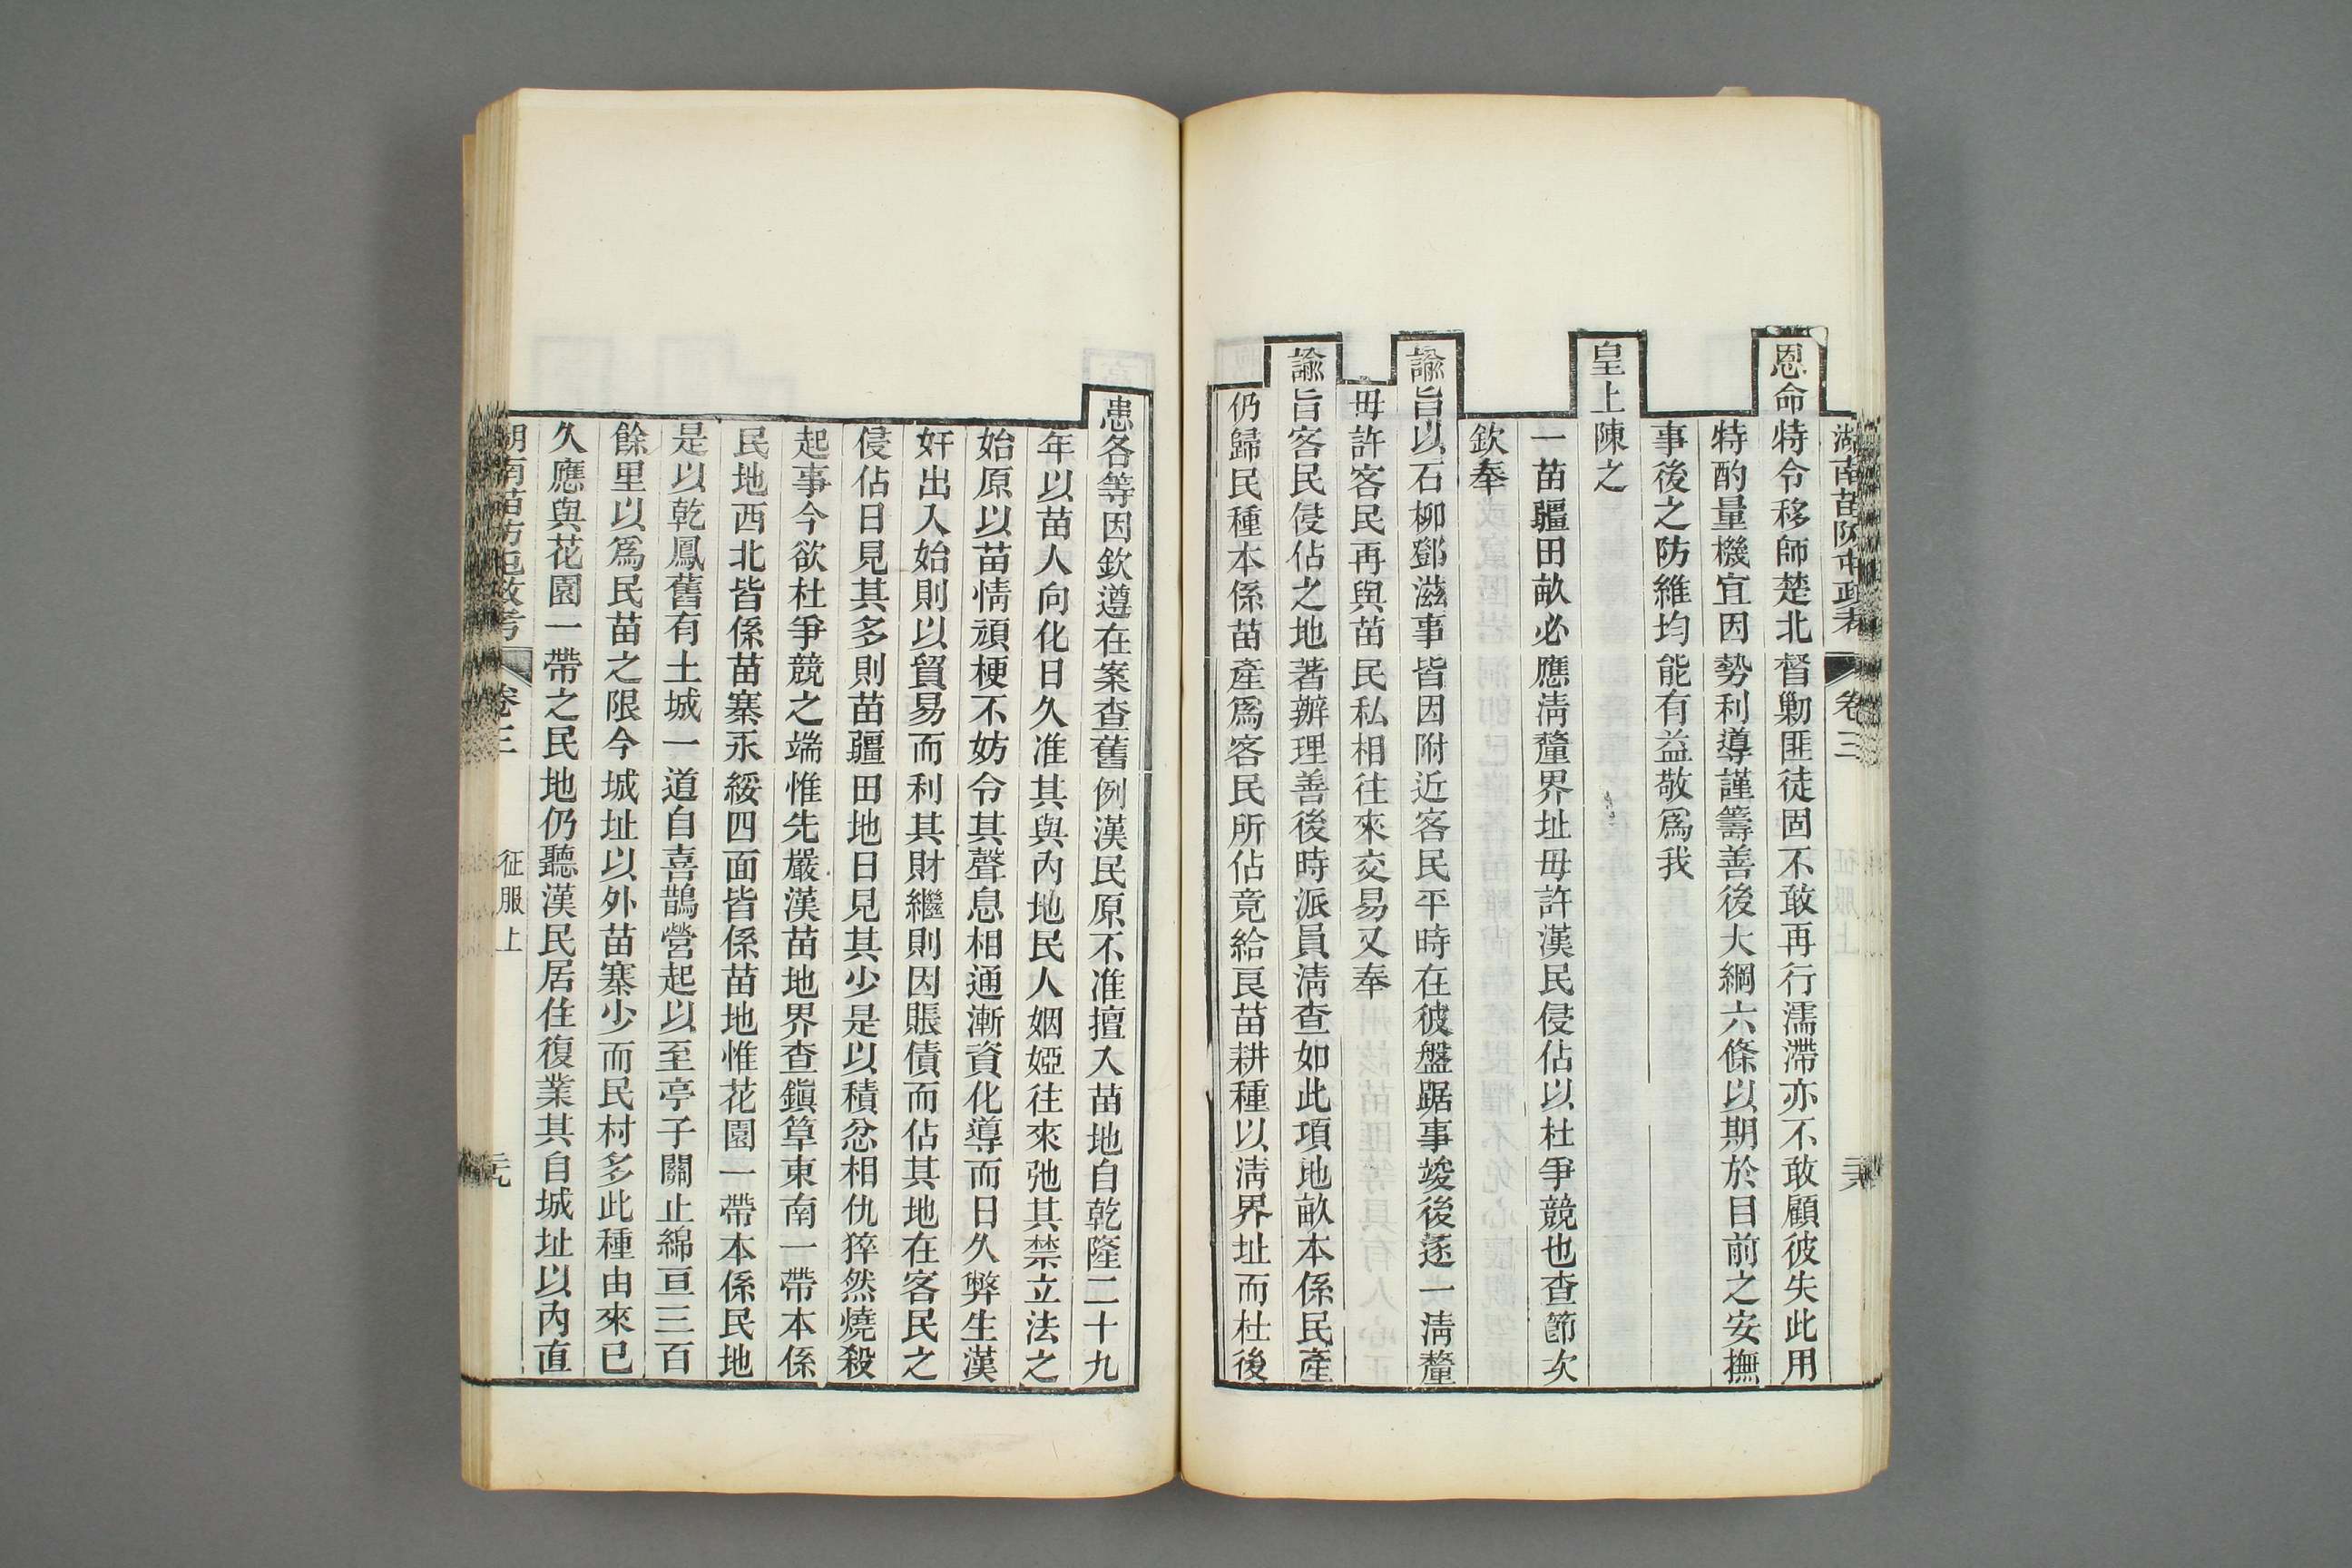 湖南苗防屯政考 卷三
恩命特令移師楚北督勦匪徒固不敢再行濡滯亦不敢顧彼失此用
特酌量機宜因勢利導謹籌善後大綱六條以期於目前之安撫
事後之防維均能有益敬爲我
皇上陳之
一苗疆田畝必應淸釐界址毋許漢民侵佔以杜爭競也查節次
欽奉
諭旨以石柳鄧滋事皆因附近客民平時在彼盤踞事竣後逐一淸釐
毋許客民再與苗民私相往來交易又奉
諭旨客民侵佔之地著辦理善後時派員淸查如此項地畝本係民產
仍歸民種本係苗產爲客民所佔竟給良苗耕種以淸界址而杜後
患各等因欽遵在案查舊例漢民原不准擅入苗地自乾隆二十九
年以苗人向化日久准其與內地民人姻婭往來弛其禁立法之
始原以苗情頑梗不妨令其聲息相通漸資化導而日久弊生漢
奸出入始則以貿易而利其財繼則因賬債而佔其地在客民之
侵佔日見其多則苗疆田地日見其少是以積忿相仇猝然燒殺
起事今欲杜爭競之端惟先嚴漢苗地界查鎭筸東南一帶本係
民地西北皆係苗寨永綏四面皆係苗地惟花園一帶本係民地
是以乾鳳舊有土城一道自喜鵲營起以至亭子關止綿亘三百
餘里以爲民苗之限今城址以外苗寨少而民村多此種由來已
久應與花園一帶之民地仍聽漢民居住復業其自城址以內直
湖南苗防屯政考 卷三 征服上